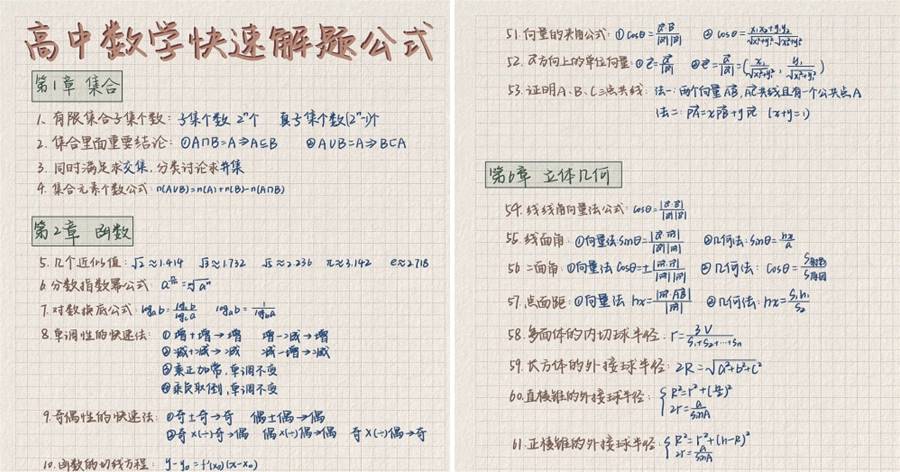 高中数学快速解题公式
第1章 集合
1. 有限集合子集个数: 子集个数 2ⁿ个 真子集个数(2ⁿ-1)个
2. 集合里面重要结论: ①A∩B=A⇒A⊆B ②A∪B=A⇒B⊂A
3. 同时满足求交集, 分类讨论求并集
4. 集合元素个数公式: n(A∪B)=n(A)+n(B)-n(A∩B)
第2章 函数
5. 几个近似值: √2≈1.414 √3≈1.732 √5≈2.236 π≈3.142 e≈2.718
6. 分数指数幂公式:
7. 对数换底公式: logₐb=log_c b/log_c a logₐb=1/log_b a
8. 单调性的快速法: ①增+增→增 增-减→增
②减+减→减 减-增→减
③乘正加常, 单调不变
④乘负取倒, 单调不变
9. 奇偶性的快速法: ①奇±奇→奇 偶±偶→偶
②奇×(÷)奇→偶 偶×(÷)偶→偶 奇×(÷)偶→奇
10. 函数的切线方程: y-y₀=f'(x₀)(x-x₀)
51. 向量的夹角公式: ①cosθ=a⃗·b⃗/|a⃗||b⃗| ②cosθ=(x₁x₂+y₁y₂)/(√(x₁²+y₁²)√(x₂²+y₂²))
52. a⃗方向上的单位向量: ①e⃗=a⃗/|a⃗|
53. 证明A、B、C三点共线: 法一: 两个向量AB⃗, AC⃗共线且有一个公共点A
法二: PA⃗=xPB⃗+yPC⃗ (x+y=1)
第6章 立体几何
54. 线线角向量法公式: cosθ=|a⃗·b⃗|/|a⃗||b⃗|
55. 线面角: ①向量法: sinθ= ②几何法: sinθ=
56. 二面角: ①向量法 cosθ=± ②几何法: cosθ=
57. 点面距: ①向量法 ②几何法:
58. 多面体的内切球半径: r=3V/(S₁+S₂+…+Sₙ)
59. 长方体的外接球半径: 2R=√(a²+b²+c²)
60. 直棱锥的外接球半径: {R²=r²+(h/2)²
2r=a/sinA
61. 正棱锥的外接球半径: {R²=r²+(h-R)²
2r=a/sinA